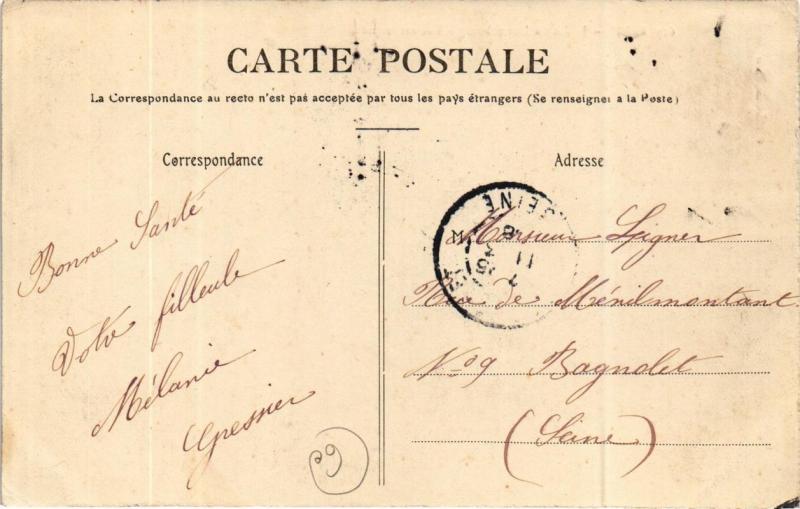 CARTE POSTALE
La Correspondance au recto n'est pas acceptée par tous les pays étrangers (Se renseigner à la Poste)
Correspondance
Bonne Santé
Votre filleule
Mélanie
Gressier
Adresse
Monsieur Ligner
Rue de Ménilmontant
No 9 Bagnolet
(Seine)
SEINE
69